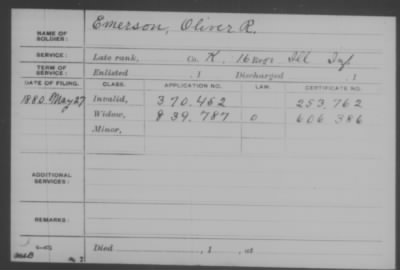 NAME OF SOLDIER: Emerson, Oliver R.
SERVICE: Late rank, Co. K, 16 Reg't Ill Inf
TERM OF SERVICE: Enlisted , 1 Discharged , 1
DATE OF FILING. CLASS. APPLICATION NO. LAW. CERTIFICATE NO.
1880. May 27 Invalid, 370.452 253.762
Widow, 839.787 0 606 386
Minor,
ADDITIONAL SERVICES:
REMARKS:
Died , 1 , at